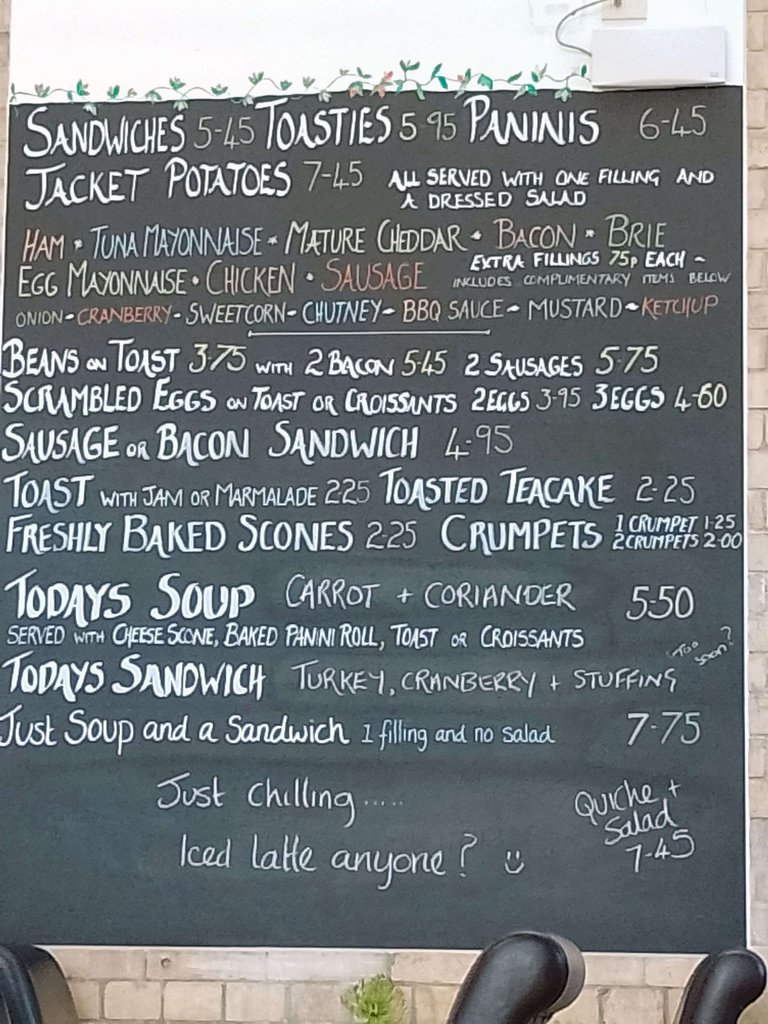 SANDWICHES 5-45 TOASTIES 5 95 PANINIS 6-45
JACKET POTATOES 7-45 ALL SERVED WITH ONE FILLING AND
A DRESSED SALAD
HAM • TUNA MAYONNAISE • MATURE CHEDDAR • BACON • BRIE
EGG MAYONNAISE • CHICKEN • SAUSAGE EXTRA FILLINGS 75p EACH ~
INCLUDES COMPLIMENTARY ITEMS BELOW
ONION - CRANBERRY - SWEETCORN - CHUTNEY - BBQ SAUCE - MUSTARD - KETCHUP
BEANS ON TOAST 3.75 WITH 2 BACON 5.45 2 SAUSAGES 5.75
SCRAMBLED EGGS ON TOAST OR CROISSANTS 2 EGGS 3-95 3 EGGS 4-60
SAUSAGE OR BACON SANDWICH 4-95
TOAST WITH JAM OR MARMALADE 2.25 TOASTED TEACAKE 2-25
FRESHLY BAKED SCONES 2-25 CRUMPETS 1 CRUMPET 1-25
2 CRUMPETS 2-00
TODAYS SOUP CARROT + CORIANDER 5-50
SERVED WITH CHEESE SCONE, BAKED PANINI ROLL, TOAST OR CROISSANTS
TODAYS SANDWICH TURKEY, CRANBERRY + STUFFING
Too soon?
Just Soup and a Sandwich 1 filling and no salad 7-75
Just chilling.....
Iced latte anyone?
Quiche +
Salad
7-45